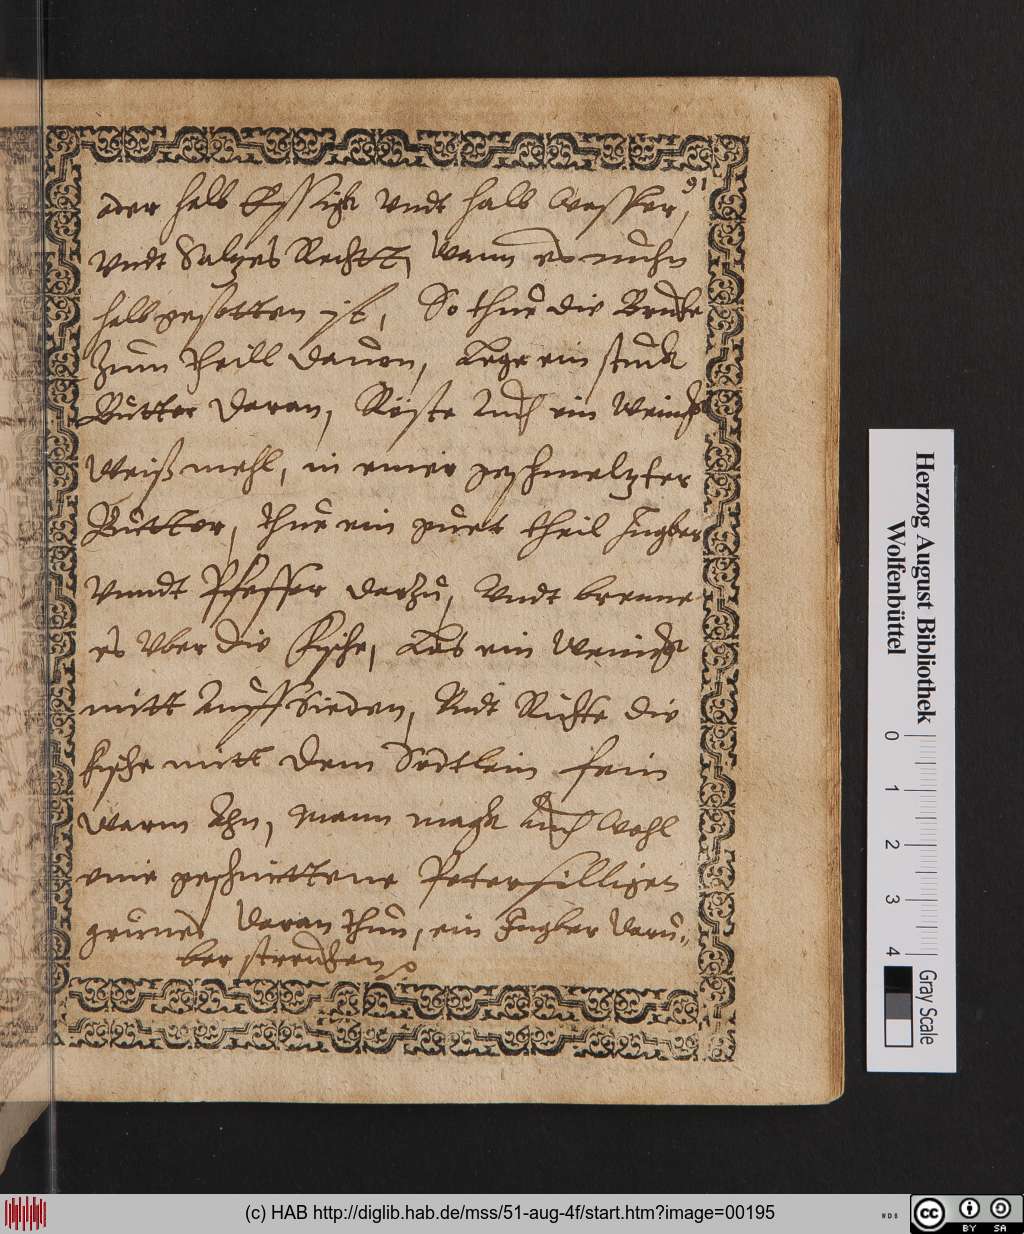 91
oder halb Essigk vndt halb Wasser,
vndt Saltzes Rechtt, Wann es nuhn
halbgesotten ist, So thue die Bruhe
Zum theill dauon, Lege ein stuck
Butter daran, Röste Auch ein Weinigk
Weißmehl, in einer geschmeltzter
Butter, thue ein guet theil Ingber
Vnndt Pfeffer darzu, Vndt brenne
es Vber die Fische, Las ein Weinigk
mitt Auffsieden, Vndt Richte die
Fische mitt dem Södtlein fein
Warm Ahn, Mann magk Auch Wohl
eine geschnittene Petersilligen
grunes daran thun, ein Ingber daru-
ber strewhen
Herzog August Bibliothek
Wolfenbüttel
0 1 2 3 4
Gray Scale
(c) HAB http://diglib.hab.de/mss/51-aug-4f/start.htm?image=00195
WDB
cc BY SA